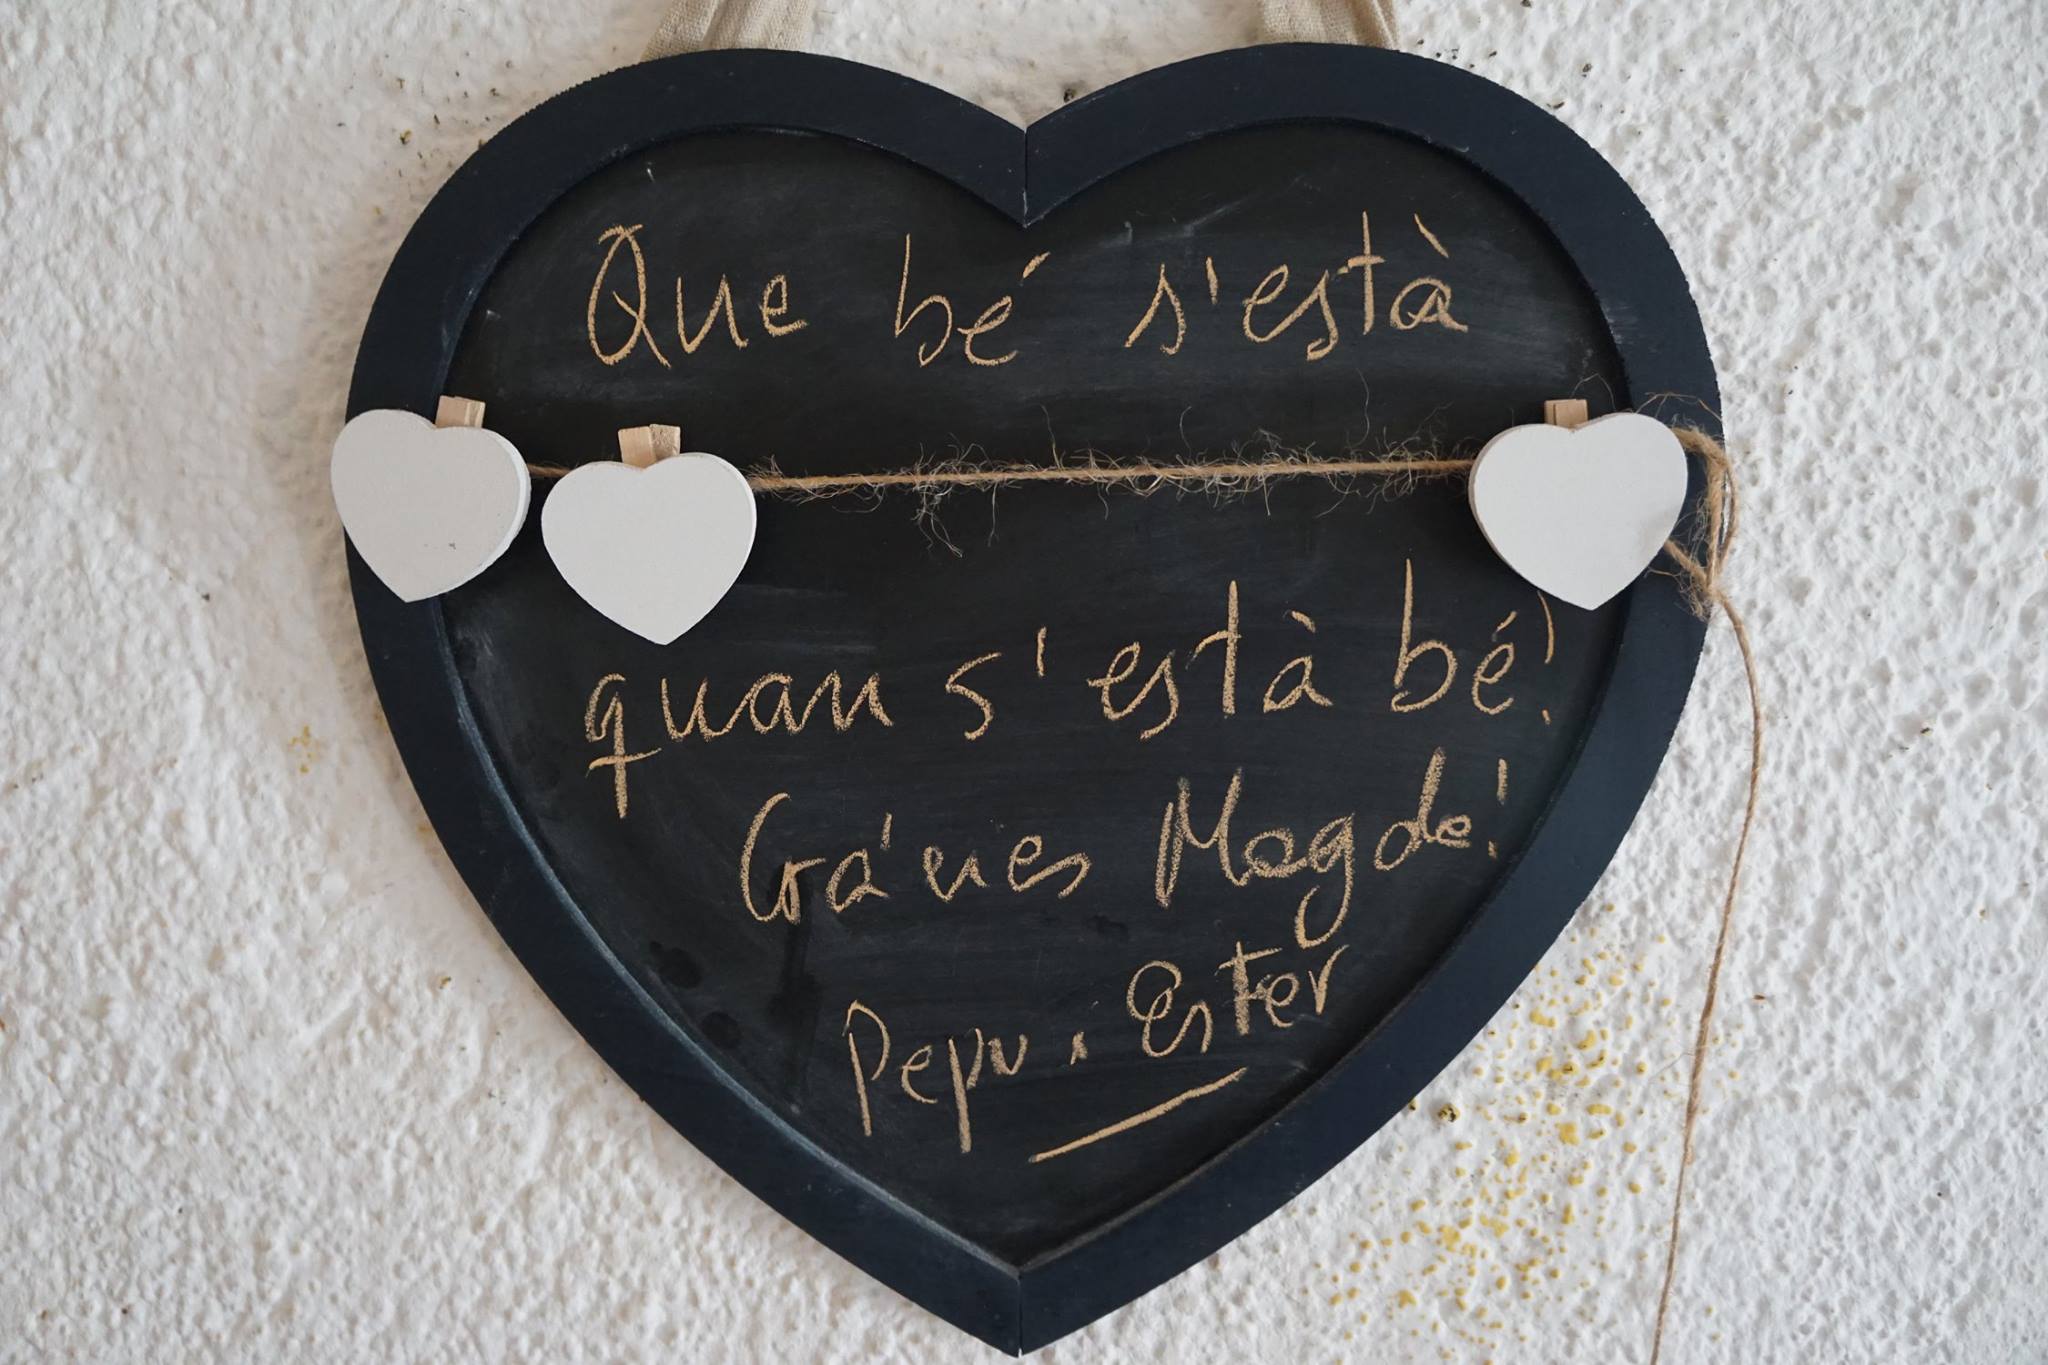 Que bé s'està
quan s'està bé!
Gràcies Magda!
Pepu i Ester